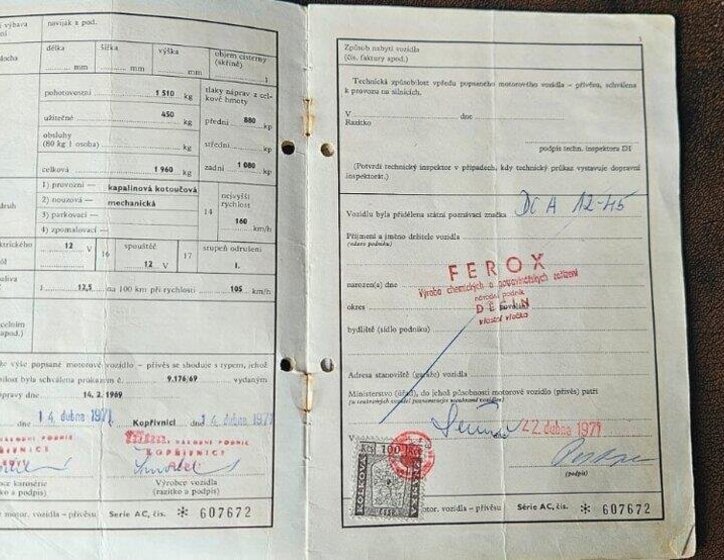 výbava
naviják z pod.
délka
šířka
výška
objem cisterny
(skříně)
mm
mm
mm
l
plocha
pohotovostní
1 510 kg
tlaky náprav z cel-
kové hmoty
užitečné
450 kg
přední 880 kp
obsluhy
(80 kg 1 osoba)
kg
střední kp
celková
1 960 kg
zadní 1 080 kp
1) provozní —
kapalinová kotoučová
2) nouzová —
mechanická
3) parkovací —
4) zpomalovací —
druh
14
nejvyšší
rychlost
160
km/h
12 V
16
spouště
12 V
17
stupeň odrušení
I.
12,5 na 100 km při rychlosti 105 km/h
že výše popsané motorové vozidlo – přívěs se shoduje s typem, jehož
byla schválena průkazem č. 9.176/69 vydaným
dopravy dne 14. 2. 1969
dne 14. dubna 1971 Kopřivnici 14. dubna 1971
NÁRODNÍ PODNIK
KOPŘIVNICE
Výrobce karosérie
(razítko a podpis)
Výrobce vozidla
(razítko a podpis)
motor. vozidla – přívěsu Série AC, čís. ✻ 607672
3
Způsob nabytí vozidla
(čís. faktury apod.)
Technická způsobilost vpředu popsaného motorového vozidla – přívěsu, schválena
k provozu na silnicích.
V dne
Razítko
podpis techn. inspektora DI
(Potvrdí technický inspektor v případech, kdy technický průkaz vystavuje dopravní
inspektorát.)
Vozidlu byla přidělena státní poznávací značka DC A 12-45
Příjmení a jméno držitele vozidla
(název podniku)
FEROX
Výroba chemických a potravinářských zařízení
narozen(a) dne
národní podnik
DĚČÍN
okres
vlastní vlečka
bydliště (sídlo podniku)
Adresa stanoviště (garáže) vozidla
Ministerstvo (úřad), do jehož působnosti motorové vozidlo (přívěs) patří
V Děčín 22. dubna 1971
(podpis)
Kčs 100 Kčs
KOLKOVÁ
motor. vozidla – přívěsu Série AC, čís. ✻ 607672